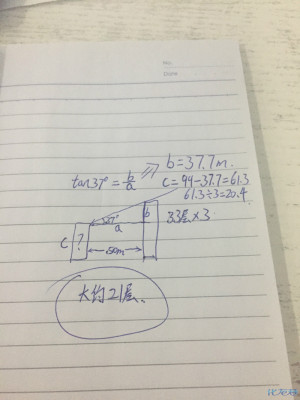 No.
Date
b=37.7m.
tan37°=b/a
c=99-37.7=61.3
61.3÷3=20.4
37°
b
33层×3
a
c
?
50m
大约21层.